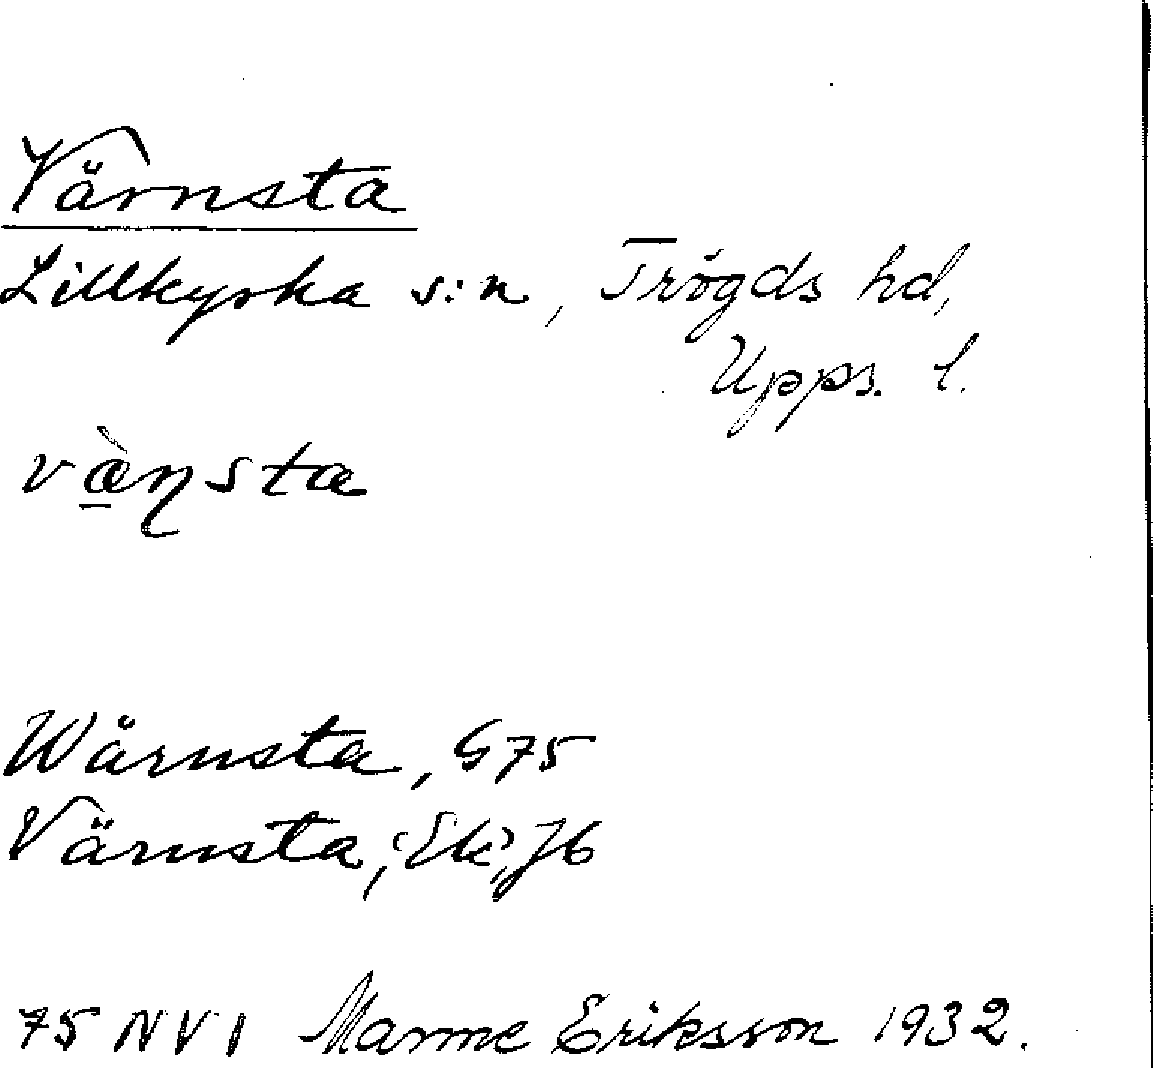 Värnsta
Lillkyrka s:n, Trögds hd,
Upps. l.
Wärnsta, G75
Värnsta, Ek, Jb
75 NV1 Manne Eriksson 1932.